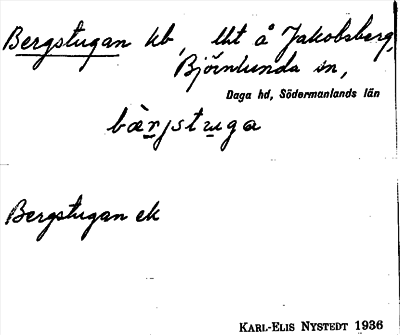 Bergstugan kb, lht å Jakobsberg,
Björnlunda sn,
Daga hd, Södermanlands län
bærjstuga
Bergstugan ek
KARL-ELIS NYSTEDT 1936